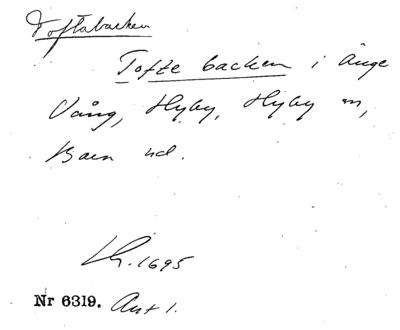 Toftabacken
Tofte backen i Änge
Vång, Hyby, Hyby sn,
Bara hd.
Lh. 1695
Nr 6319. Ant 1.